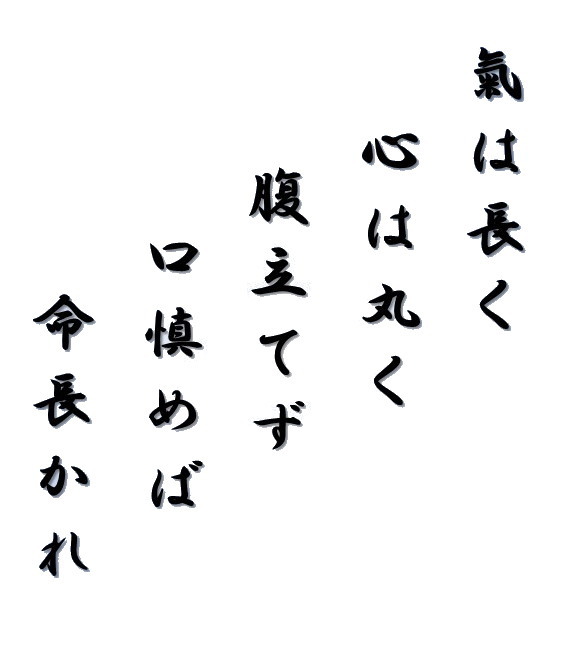 氣は長く
心は丸く
腹立てず
口慎めば
命長かれ